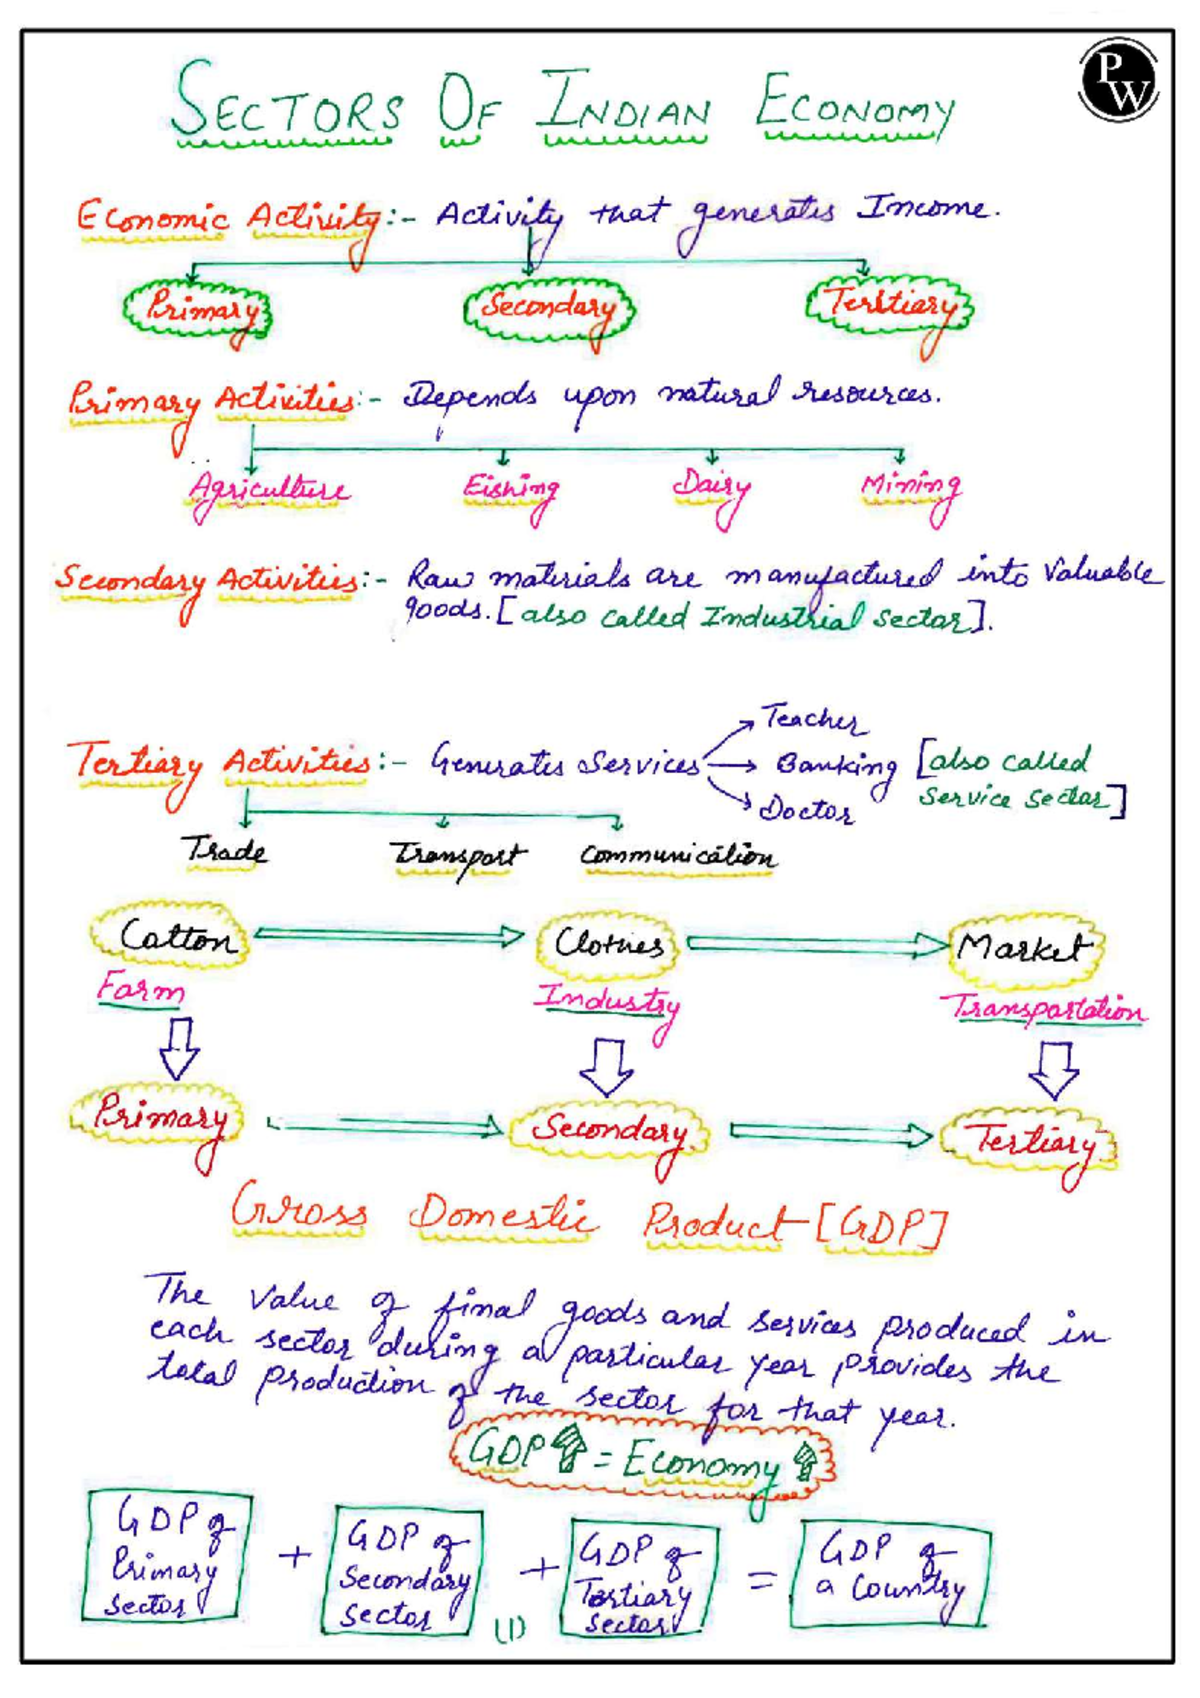 PW
SECTORS OF INDIAN ECONOMY
Economic Activity:- Activity that generates Income.
Primary Secondary Tertiary
Primary Activities:- Depends upon natural resources.
Agriculture Fishing Dairy Mining
Secondary Activities:- Raw materials are manufactured into Valuable
goods. [also called Industrial Sector].
Teacher
Tertiary Activities:- Generates Services Banking [also called
Doctor Service Sector]
Trade Transport Communication
Cotton Clothes Market
Farm Industry Transportation
Primary Secondary Tertiary
Gross Domestic Product [GDP]
The Value of final goods and services produced in
each sector during a particular year provides the
total production of the sector for that year.
GDP = Economy
GDP of + GDP of + GDP of = GDP of
Primary Secondary Tertiary a Country
Sector Sector Sector
(1)